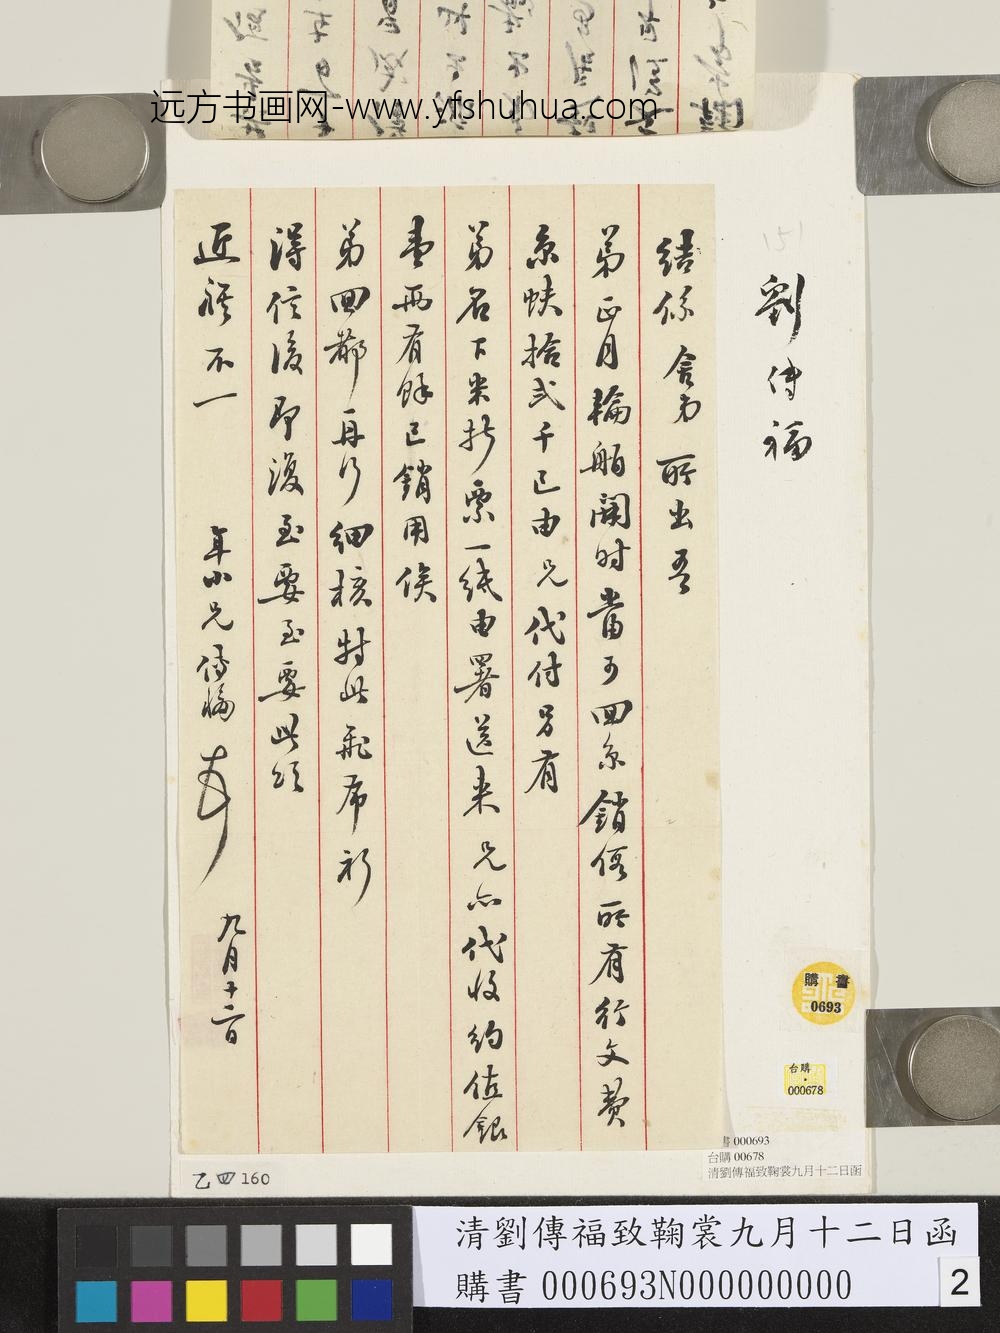 远方书画网-www.yfshuhua.com
劉傳福
結係舍弟所出吾
弟正月輪舶開时當可回京銷假所有行文費
京蚨拾弍千已由兄代付另有
弟名下米折票一紙由署送来兄亦代收約值銀
壹两有餘已銷用俟
弟回都再行細核特此飛布祈
得信後即復至要至要此頌
近祺不一
年小兄傳福
九月十二日
購書
0693
台購
000678
書 000693
台購 00678
清劉傳福致鞠裳九月十二日函
乙四160
清劉傳福致鞠裳九月十二日函
購書 000693N000000000
2